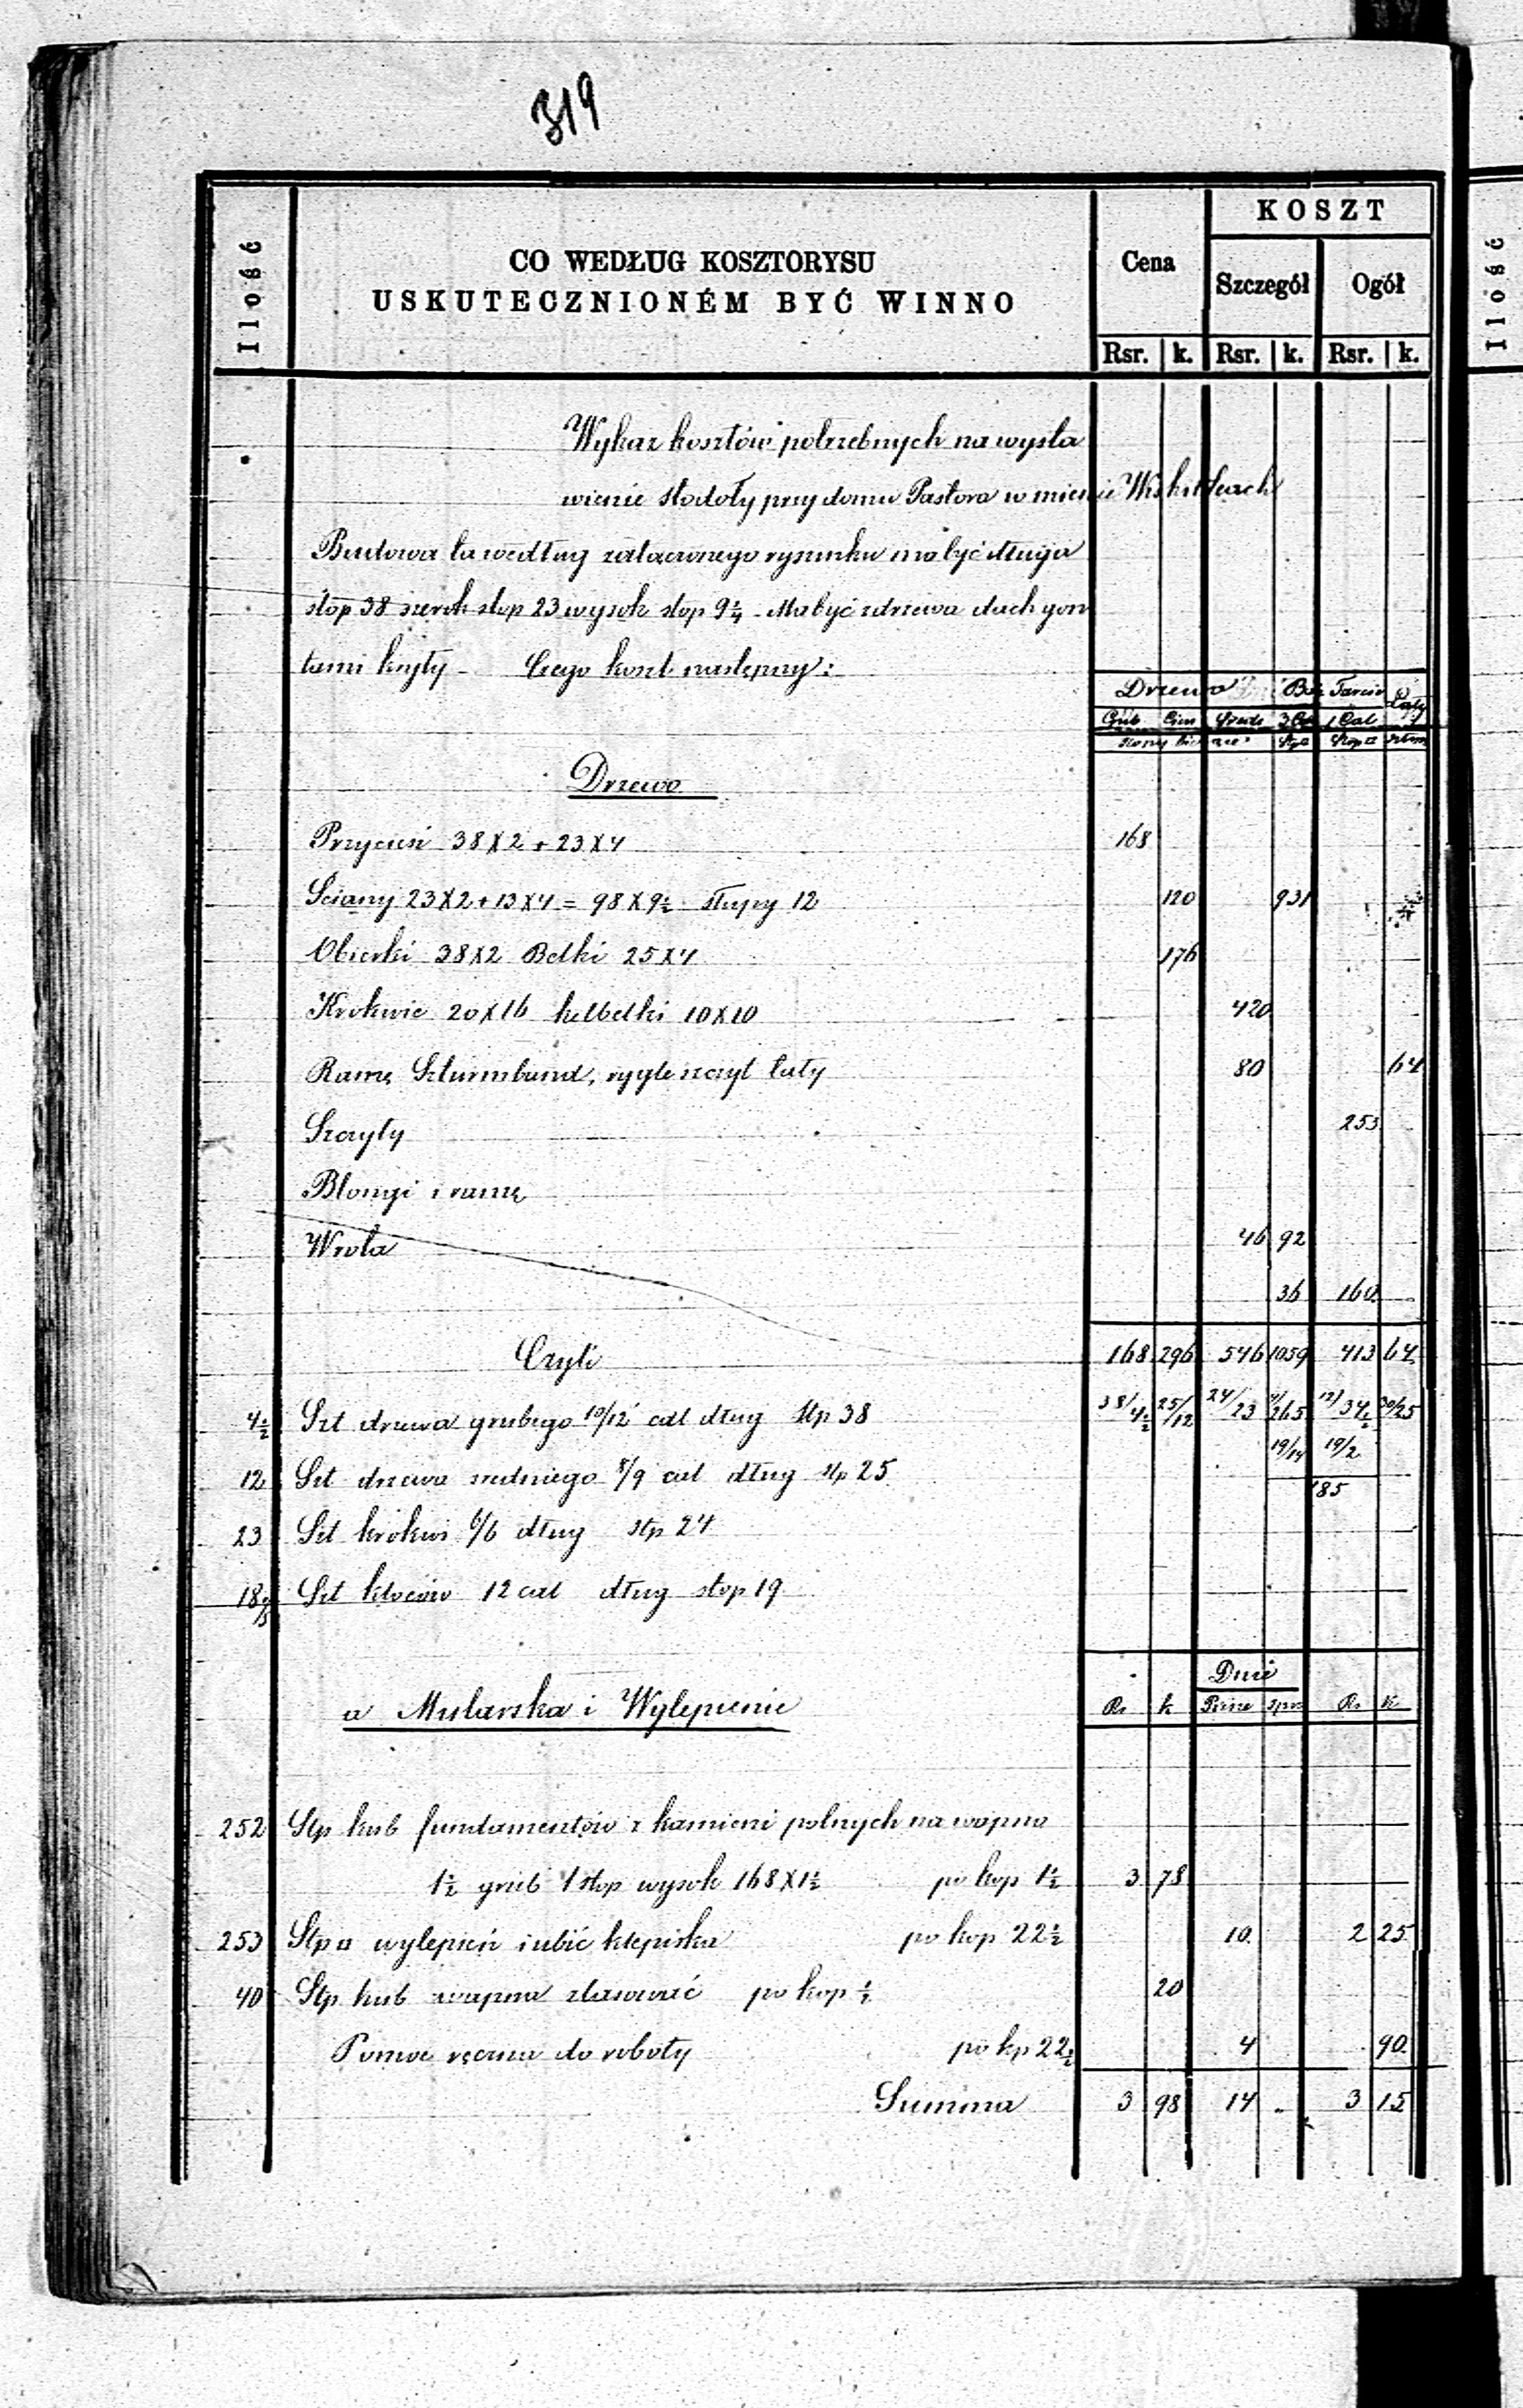 319
Ilość
CO WEDŁUG KOSZTORYSU
USKUTECZNIONÉM BYĆ WINNO
Cena
KOSZT
Szczegół Ogół
Rsr. k. Rsr. k. Rsr. k.
Wykaz kosztów potrzebnych na wysta
wienie stodoły przy domu Pastora w mieście Wiskitkach
Budowa ta według załączonego rysunku ma być długa
stóp 38 szerok stop 23 wysok stop 9½ Ma być z drzewa dach gon
tami kryty - Czego koszt następny:
Drzewo Bale Tarcic Łaty
Grub Cien Średn 3 Cal 1 Cal
Stopy Stp □ Stop □
Drzewo
Przycieś 38 X 2 + 23 X 4 168
Ściany 23 X 2 + 13 X 4 = 98 X 9½ słupy 12 120 931
Obierki 38 X 2 Belki 25 X 4 176
Krokwie 20 X 16 kelbelki 10 X 10 420
Ramę Szturmband, rygle szczyt łaty 80 64
Szczyty 253
Blongi i ramę
Wrota 46 92
36 160
Czyli 168 296 546 1059 413 64
4½ Szt drzewa grubego 10/12 cal dług Stp 38 38/4½ 25/12 24/23 4/265 12/34½ 30/25
19/14 19/2
12 Szt drzewa średniego 8/9 cal dług stp 25 185
23 Szt krokwi 6/6 dług stp 24
18 Szt kloców 12 cal dług stop 19
Dnie
a Mularska i Wylepienie Rs k Piesze sprz Rs k
252 Stp kub fundamentów z kamieni polnych na wapno
1½ grub 1 stop wysok 168 X 1½ po kop 1½ 3 78
253 Stp □ wylepień i ubić klepiska po kop 22½ 10 2 25
40 Stp kub wapna zlasować po kop ½ 20
Pomoc ręczna do roboty po kp 22½ 4 90
Summa 3 98 14 " 3 15
Ilość